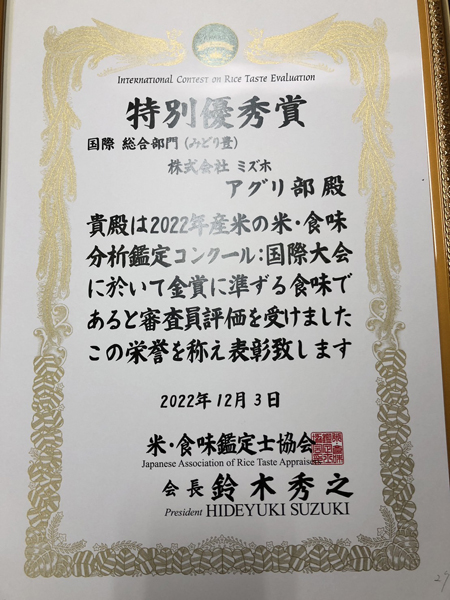 International Contest on Rice Taste Evaluation
特別優秀賞
国際 総合部門 (みどり豊)
株式会社 ミズホ
アグリ部 殿
貴殿は2022年産米の米・食味
分析鑑定コンクール:国際大会
に於いて金賞に準ずる食味で
あると審査員評価を受けました
この栄誉を称え表彰致します
2022年12月3日
米・食味鑑定士協会
Japanese Association of Rice Taste Appraisers
会長 鈴木秀之
President HIDEYUKI SUZUKI